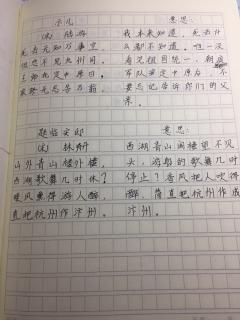 示儿
(宋) 陆游
死去元知万事空,
但悲不见九州同。
王师北定中原日,
家祭无忘告乃翁。
意思:
我本来知道,死去什
么都不知道,但一没
看见祖国统一。朝廷
军队定中原后,不
要忘记告诉你们的父
亲。
题临安邸
(宋) 林升
山外青山楼外楼,
西湖歌舞几时休?
暖风熏得游人醉,
直把杭州作汴州。
意思:
西湖青山阁楼望不见
头,游船的歌舞几时
停止?香风把人吹得
醉,简直把杭州作成
汴州。